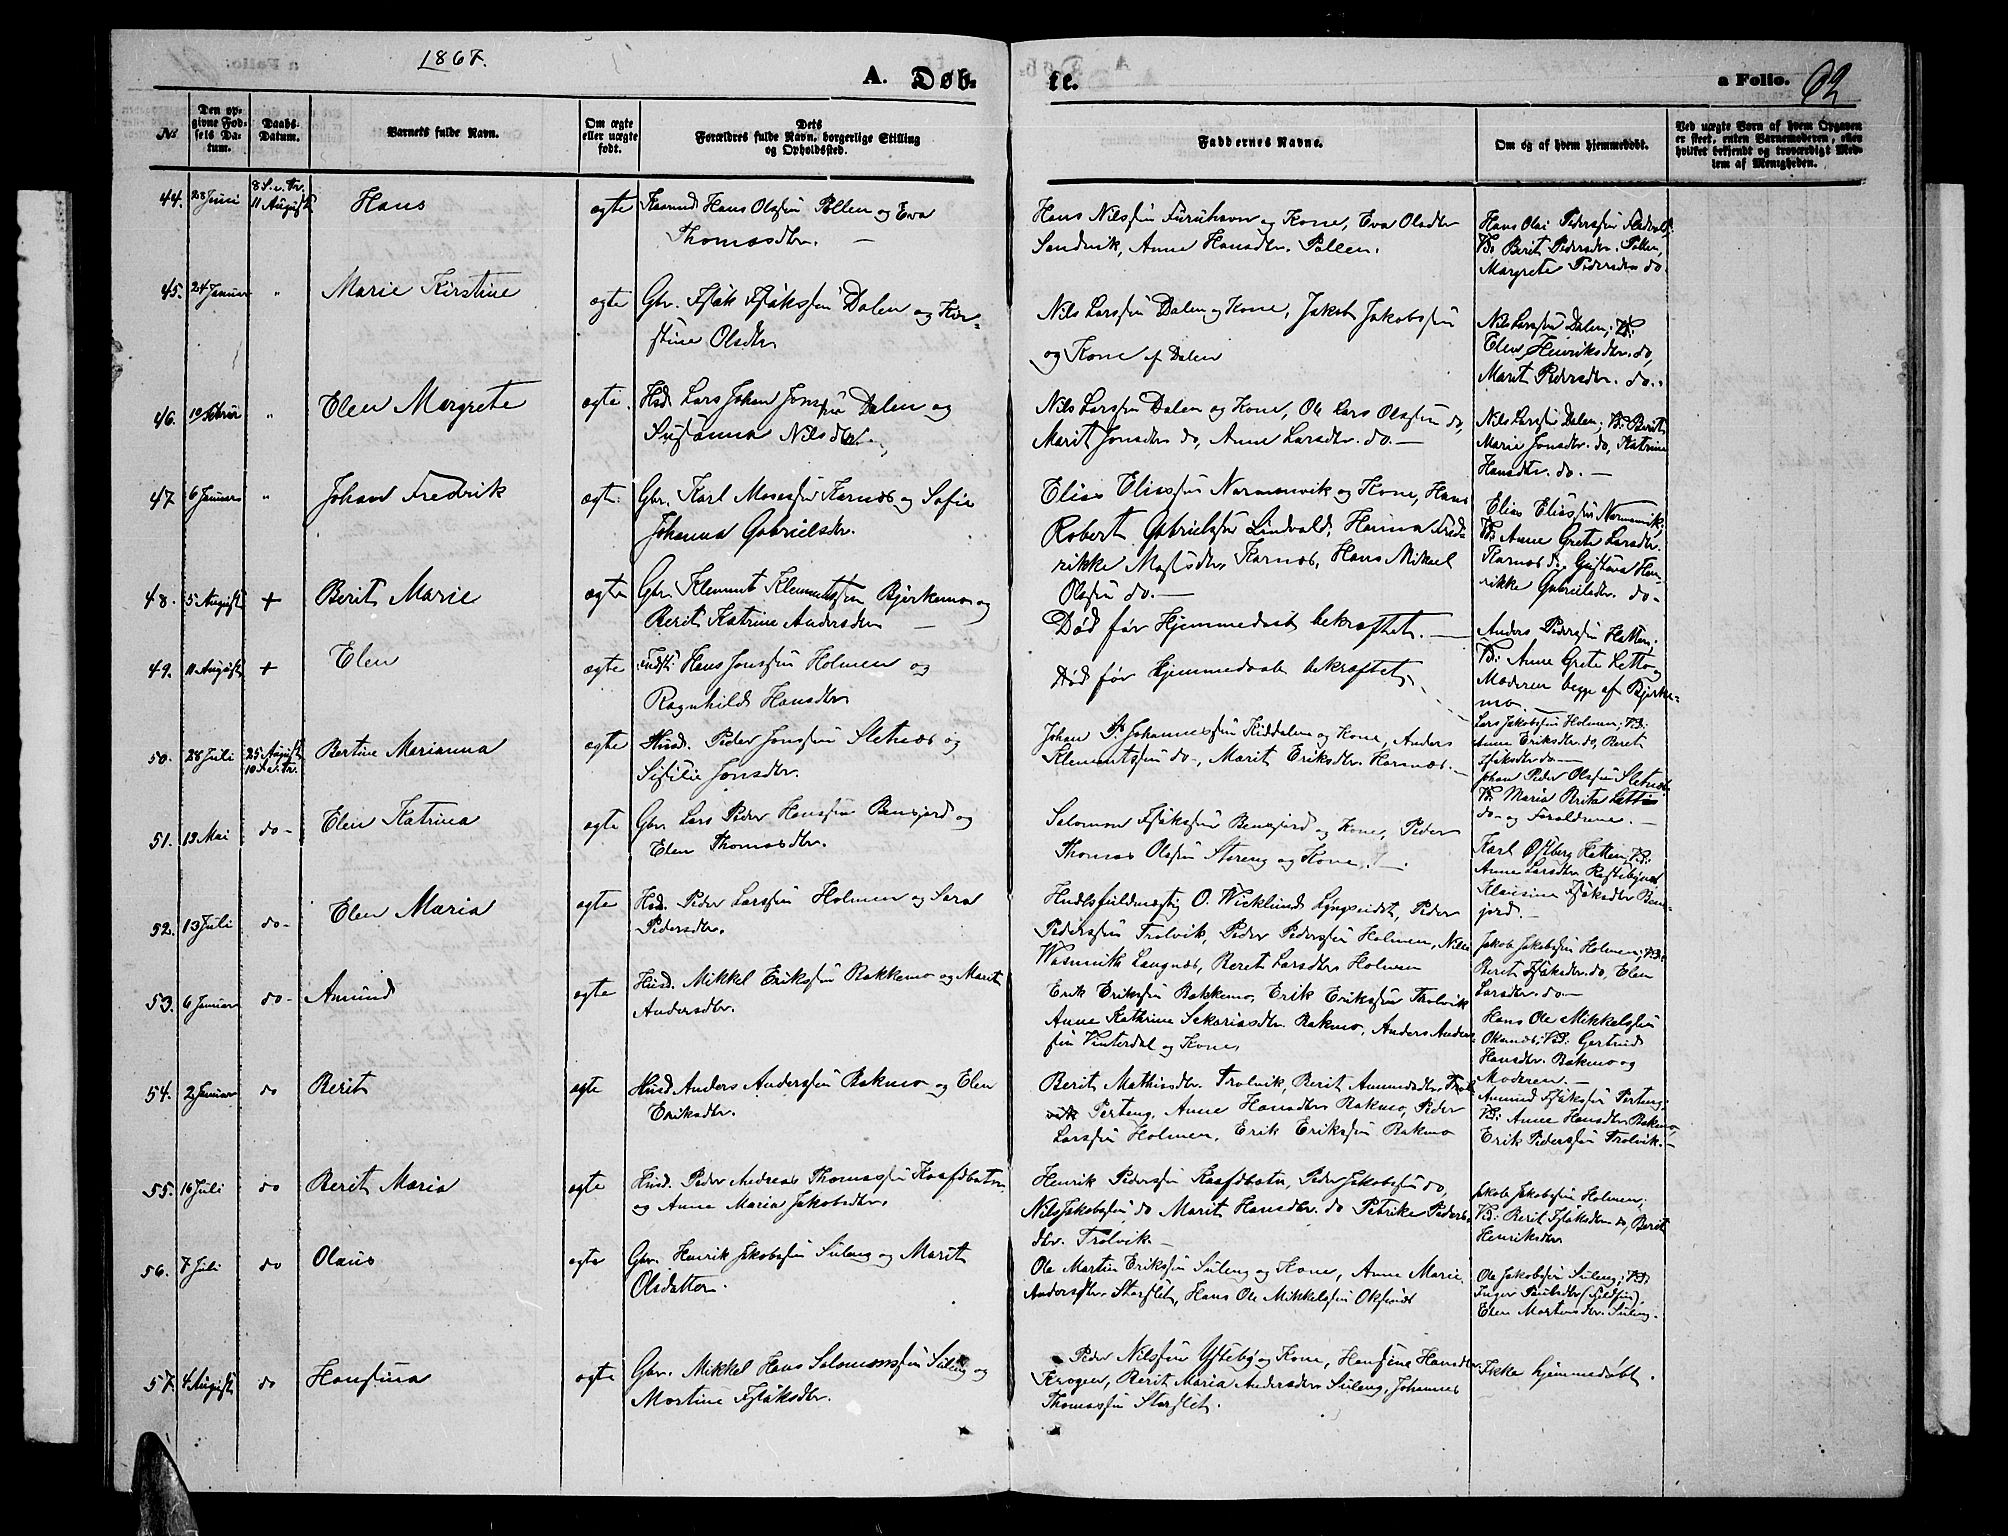 1867.
A. Døb-
te.
a Folio. 62
No
Den op-
givne Fød-
sels Da-
tum.
Daabs-
Datum.
Barnets fulde Navn.
Om ægte
eller uægte
født.
Dets
Forældres fulde Navn, borgerlige Stilling
og Opholdssted.
Faddernes Navne.
Om og af hvem hjemmedøbt.
Ved uægte Børn af hvem Opgaven
er skeet, enten Barnemoderen, eller
hvilket bekjendt og troværdigt Med-
lem af Menigheden.
44. 28 Juni 8 S. e. Tr. 11 August Hans ægte Hans Olsen Pollen og Eva
Thomasdtr. —
Hans Nilssen Furuhavn og Kone, Eva Olsdtr
Sandvik, Anne Hansdtr. Pollen.
Hans Olai Pederssen
Vd: Berit Pedersdtr. Pollen,
Margrete Pedersdtr do.
45. 24 Januar " Marie Kirstine ægte Gbr. Isak Isakssen Dalen og Kir-
stine Olsdtr
Nils Larssen Dalen og Kone, Jakob Jakobssen
og Kone af Dalen
Nils Larssen Dalen; Vd:
Elen Henriksdtr. do,
Marit Pedersdtr. do.
46. 10 Februar " Elen Margrete ægte Hsd. Lars Johan Jonssen Dalen og
Susanna Nilsdtr.
Nils Larssen Dalen og Kone, Ole Lars Olssen do,
Marit Jonsdtr do, Anne Larsdtr. do. —
Nils Larssen Dalen; Vd: Berit
Marie Jonsdtr. do, Katrine
Hansdtr. do. —
47. 6 Januar " Johan Fredrik ægte Gbr. Karl Mosessen Karnes og Sofie
Johanna Gabrielsdtr.
Elias Eliassen Normanvik og Kone, Hans
Robert Gabrielssen Lindvald, Hanna Fred-
rikke Karnes, Hans Mikael
Olssen do. —
Elias Eliassen Normanvik;
Vd: Anne Grete Larsdtr.
Karnes og Gustava Hen-
rikke Gabrielsdtr. do-
48. 5 August + Berit Marie ægte Gbr. Klemmet Klemmetsen Bjerkemo og
Berit Katrine Andersdtr —
Død før Hjemmedaab bekræftet. —
Anders Pederssen Hatten;
Vd: Anne Grete Letto og
Moderen begge af Bjerke-
mo. —
49. 11 August + Elen ægte Hans Jonssen Holmen og
Ragnhild Hansdtr
Død før Hjemmedaab bekræftet.
Lars Jakobssen Holmen; Vd:
Anne Eriksdtr. do, Beret
Isaksdtr do —
50. 28 Juli 25 August 10 S. e. Tr. Bertine Marianna ægte Husd. Peder Jonssen Sletnes og
Sisilie Jonsdtr.
Johan P. Johannessen Kiddalen og Kone, Anders
Klemmetsen do-, Marit Eriksdtr. Hornes. —
Johan Peder Olssen Sletnes
Vd: Maria Brita Letto
do- og Forældrene. —
51. 13 Mai do- Elen Katrina ægte Gbr. Lars Peder Hanssen Bensjord og
Elen Thomasdtr.
Salomon Isakssen Bensjord og Kone, Peder
Thomas Olssen Storeng og Kone. —
Karl Østberg Hatten, Vd:
Anne Larsdtr Rastebynes
Klaisine Isaksdtr Ben-
jord. —
52. 13 Juli do- Elen Maria ægte Hsd. Peder Larssen Holmen og Sara
Pedersdtr.
Handlsfuldmægtig O. Wicklund Lyngseidet, Peder
Pederssen Trolvik, Peder Pederssen Holmen, Nils
Wasmuth Langnes, Beret Larsdtr Holmen
Jakob Jakobssen Holmen; Vd:
Berit Isaksdtr. do, Elen
Larsdtr. do —
53. 6 Januar do- Amund ægte Husd. Mikkel Erikssen Bakkemo og Marit
Andersdtr.
Erik Erikssen Bakkemo, Erik Erikssen Trolvik
Anne Kathrine Sekariasdtr. Bakmo, Anders Anders-
sen Vinterdal og Kone
Hans Ole Mikkelssen
Oksnes; Vd: Gertrud
Hansdtr. Bakmo og
Moderen. —
54. 2 Januar do Berit ægte Husd Anders Anderssen Bakmo og Elen
Eriksdtr.
Berit Mathisdtr. Trolvik, Berit Amundsdtr
Perteng, Anne Hansdtr Bakmo, Peder
Larssen Holmen, Erik Erikssen Bakmo
Amund Isakssen Perteng;
Vd: Anne Hansdtr Bakmo,
Erik Pederssen Trolvik. —
55. 16 Juli do Berit Maria ægte Husd. Peder Andreas Thomassen Kaafdbotn
og Anne Maria Jakobsdtr.
Henrik Pederssen Kaafdbotn, Peder Jakobssen do,
Nils Jakobssen do Marit Hansdtr. do Petrike Peders-
dtr. Trolvik. —
Jakob Jakobssen Holmen;
Vd: Berit Isaksdtr do, Berit
Henriksdtr
56. 7 Juli do Olaus ægte Gbr. Henrik Jakobssen Suleng og Marit
Olsdatter.
Ole Martin Erikssen Suleng og Kone, Anne Marie
Andersdtr. Storslet, Hans Ole Mikkelssen Oksnes
Ole Jakobssen Suleng; Vd:
Inger Paulsdtr
Elen Mortensdtr. Suleng.
57. 4 August do Hansina ægte Gbr. Mikkel Hans Salomonssen Suleng og
Mortine Isaksdtr.
Peder Nilssen Ysteby og Kone, Hansine Hansdtr
Krogen, Berit Maria Andersdtr Suleng, Johannes
Thomassen Storslet.
Ikke hjemmedøbt.